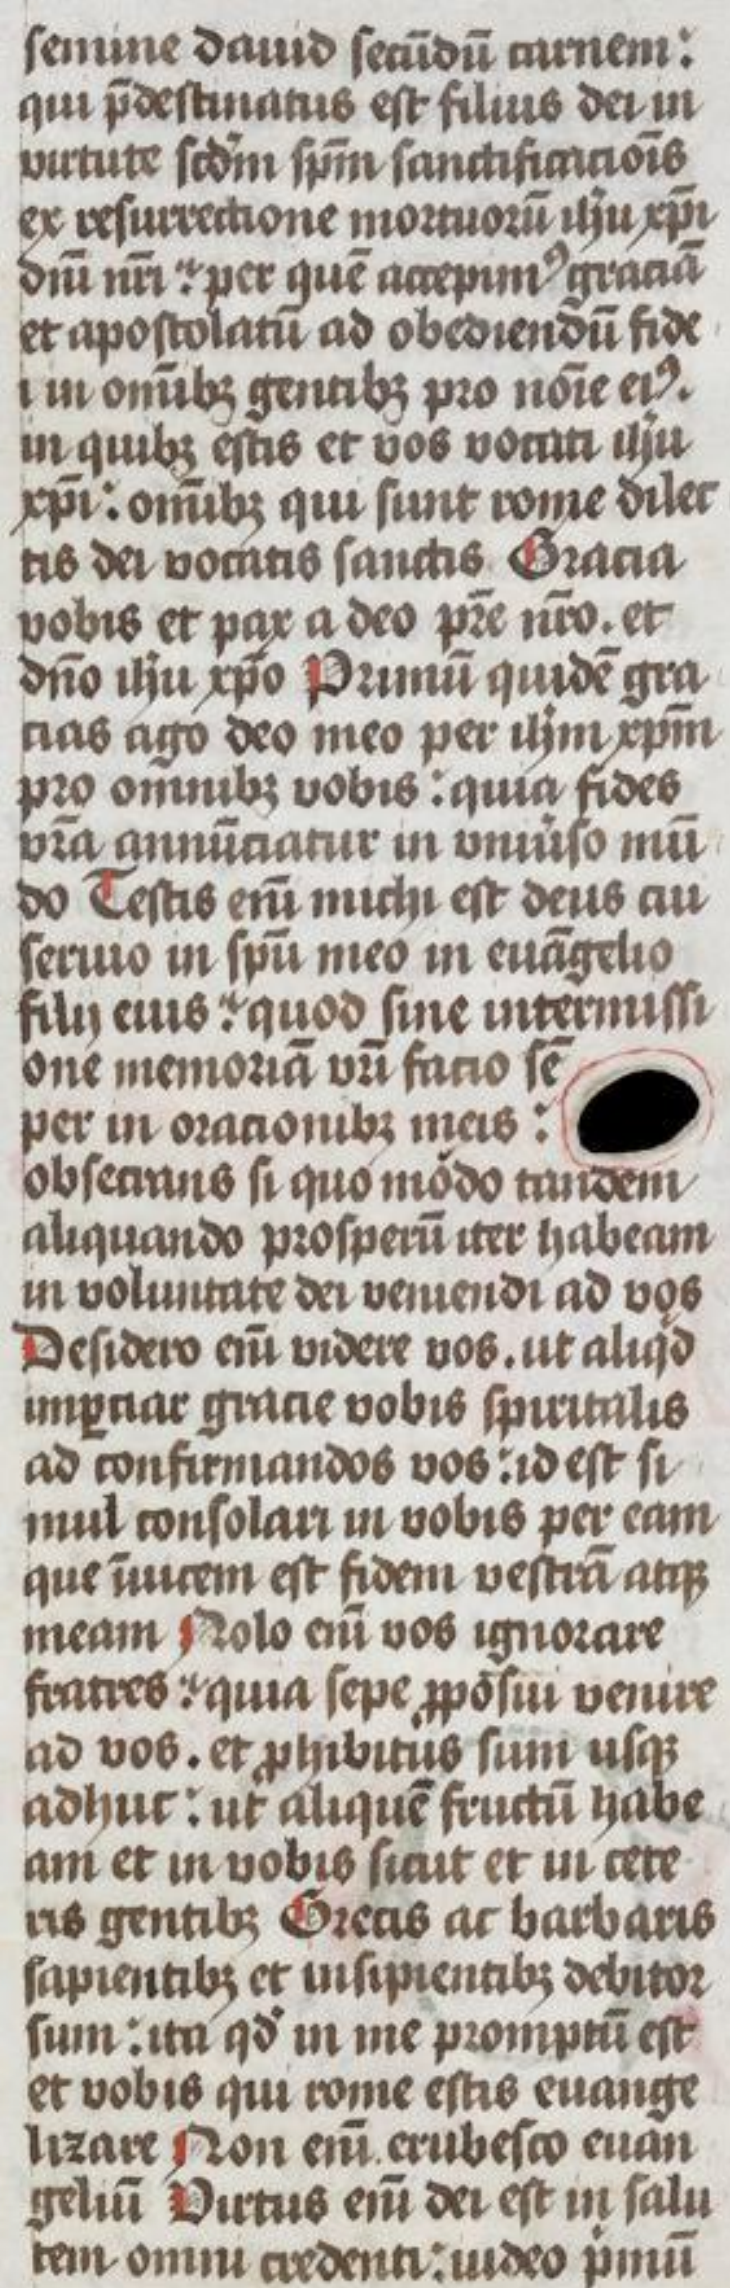 semine dauid secūdū carnem:
qui p̄destinatus est filius dei in
virtute scdm̄ sp̄m sanctificacōis
ex resurrectione mortuorū ih̄u xp̄i
dn̄i nr̄i: per quē accepimꝰ graciā
et apostolatū ad obediendū fide
i in om̄ibꝫ gentibꝫ pro nōie eiꝰ.
in quibꝫ estis et vos vocati ih̄u
xp̄i: om̄ibꝫ qui sunt rome dilec
tis dei vocatis sanctis Gracia
vobis et pax a deo pr̄e nr̄o. et
dn̄o ih̄u xp̄o Primū quidē gra
cias ago deo meo per ih̄m xp̄m
pro om̄nibꝫ vobis: quia fides
vr̄a annūciatur in vniu̓so mū
do Testis eni̅ michi est deus cui
seruio in sp̄u meo in euāgelio
filij eius: quod sine intermissi
one memoriā vr̄i facio sē
per in oracionibꝫ meis:
obsecrans si quo modo tandem
aliquando prosperū iter habeam
in voluntate dei veniendi ad vos
Desidero eni̅ videre vos. ut aliqd̄
imꝑciar gracie vobis spiritalis
ad confirmandos vos: id est si
mul consolari in vobis per eam
que īuicem est fidem vestrā atqꝫ
meam Nolo eni̅ vos ignorare
fratres: quia sepe ꝓposui venire
ad vos. et ꝓhibitus sum usqꝫ
adhuc: ut aliquē fructū habe
am et in vobis sicut et in cete
ris gentibꝫ Grecis ac barbaris
sapientibꝫ et insipientibꝫ debitor
sum: ita qd̓ in me promptū est
et vobis qui rome estis euange
lizare Non eni̅ erubesco euan
geliū Virtus eni̅ dei est in salu
tem omni credenti: iudeo pͥmū